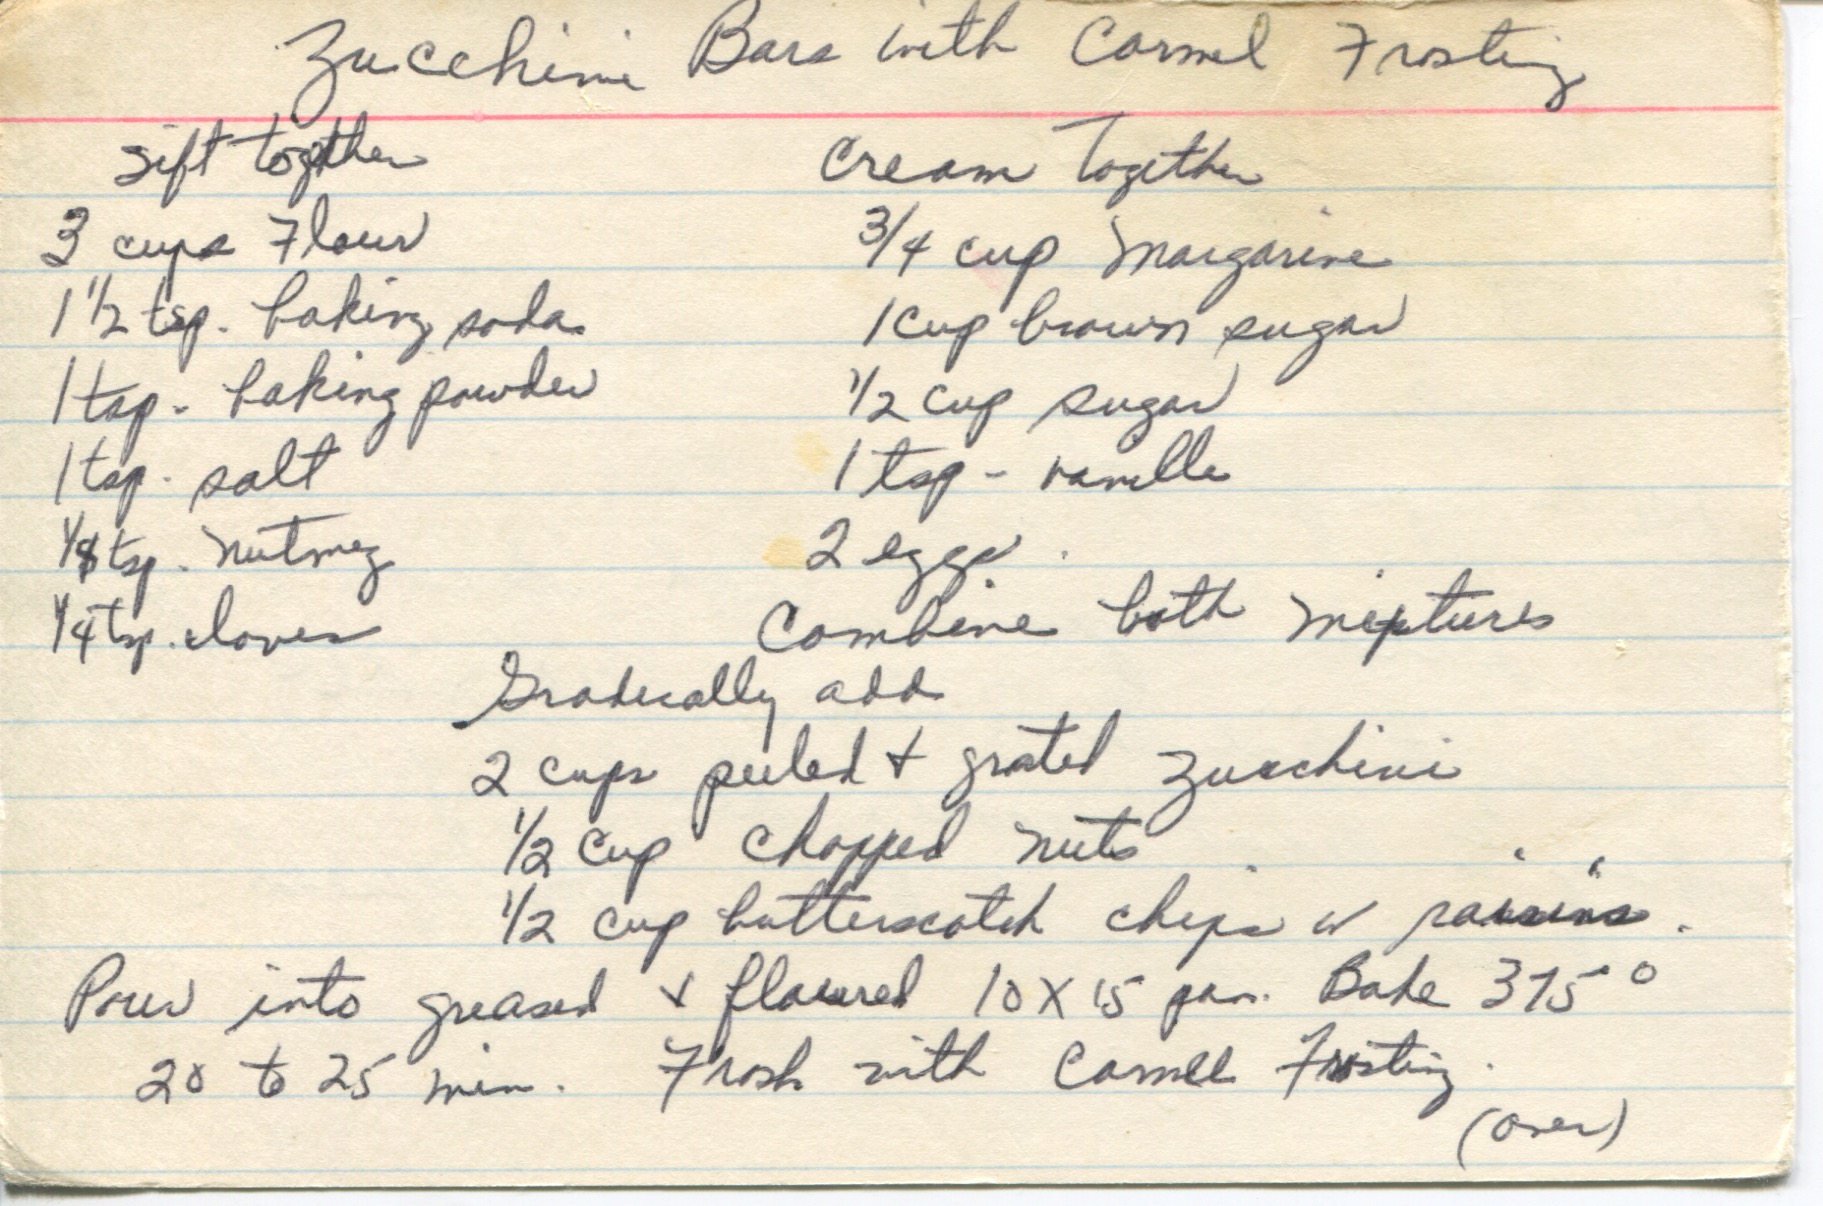 Zucchini Bars with Carmel Frosting
Sift together
3 cups Flour
1 1/2 tsp. baking soda
1 tsp. baking powder
1 tsp. salt
tsp. Nutmeg
1/4 tsp. cloves
Cream Together
3/4 cup Margarine
1 cup brown sugar
1/2 cup sugar
1 tsp - vanilla
2 eggs
Combine both mixtures
Gradually add
2 cups peeled + grated Zucchini
1/2 cup chopped nuts
1/2 cup butterscotch chips or raisins.
Pour into greased + floured 10 X 15 pan. Bake 375°
20 to 25 min. Frost with Carmel Frosting.
(over)